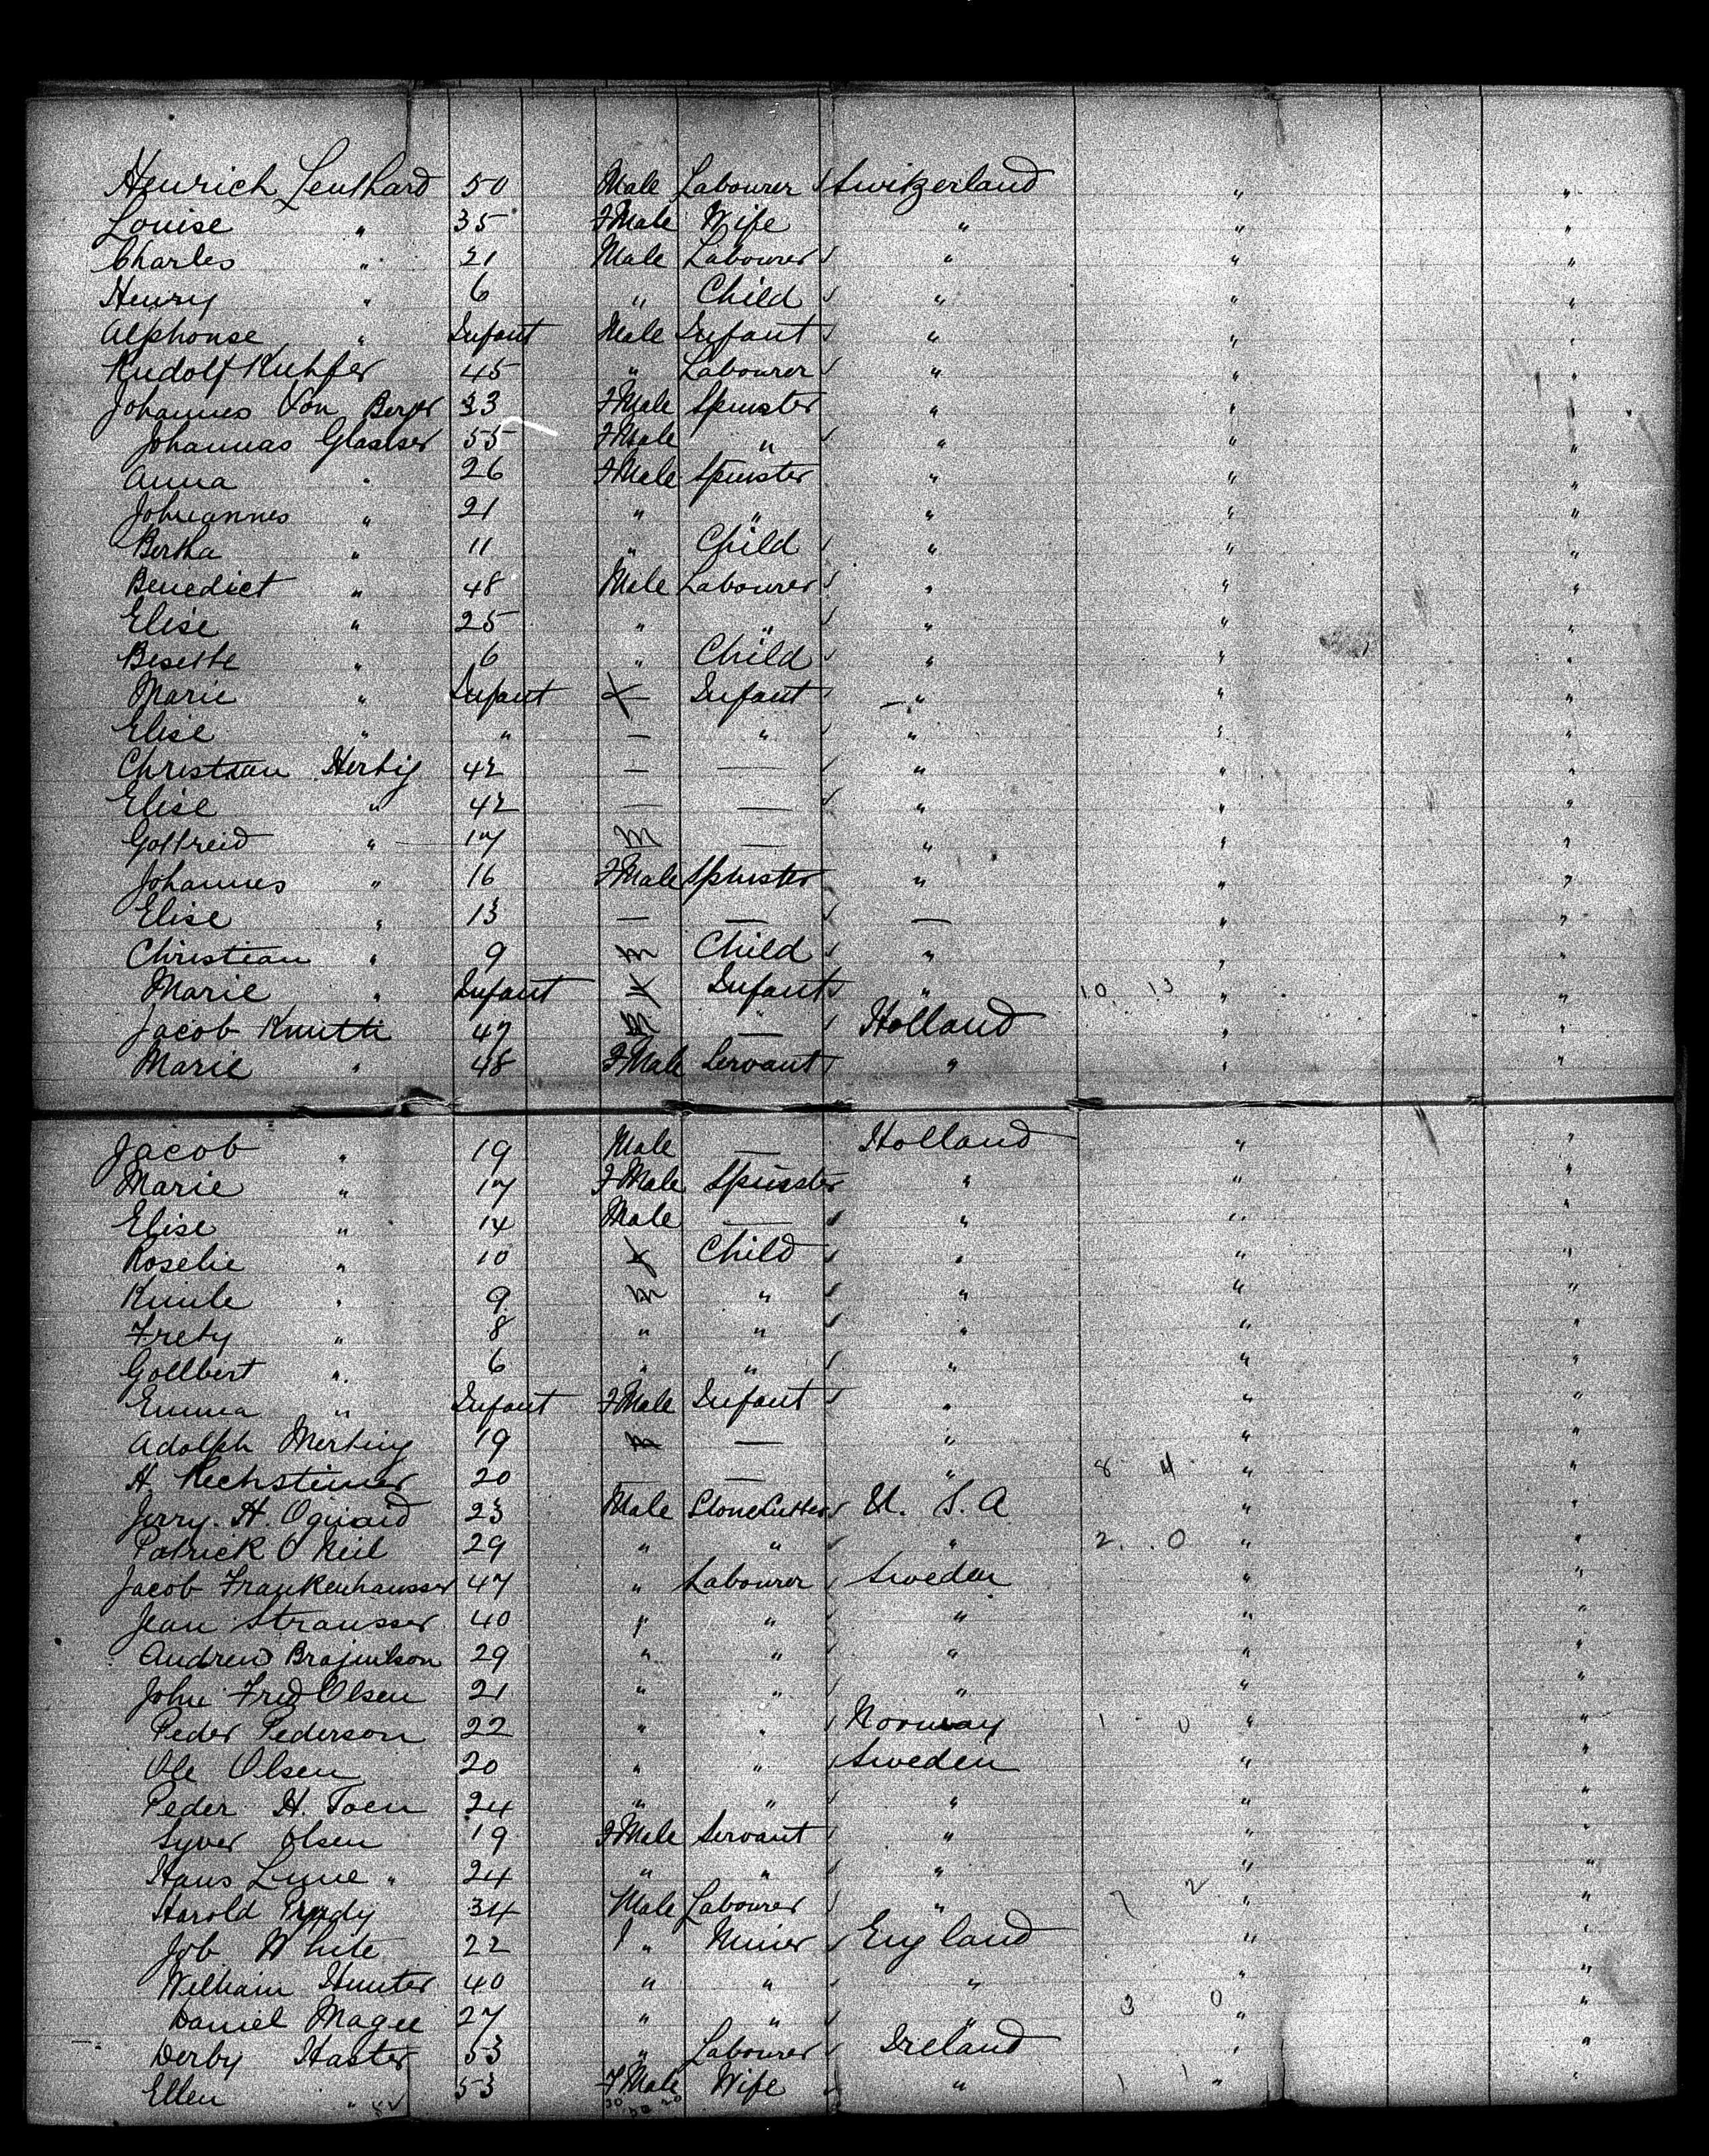 Henrich Leuthard 50 Male Labourer Switzerland " "
Louise " 35 FMale Wife " " "
Charles " 21 Male Labourer " " "
Henry " 6 " Child " " "
Alphonse " Infant Male Infant " " "
Rudolf Kuhfer 45 " Labourer " " "
Johannes Von Berger 23 FMale Spinster " " "
Johannas Glasser 55 FMale " " " "
Anna " 26 FMale Spinster " " "
Johnannes " 21 " " " " "
Bertha " 11 " Child " " "
Benedict " 48 Male Labourer " " "
Elise " 25 " " " " "
Besette " 6 " Child " " "
Marie " Infant Infant " " "
Elise " " — " " " "
Christian Hertig 42 — — " " "
Elise " 42 — — " " "
Gottreid " 17 M — " " "
Johannes " 16 FMale Spinster " " "
Elise " 13 — — — " "
Christian " 9 M Child " " "
Marie " Infant Infant " 10 13 " "
Jacob Knutti 47 M — Holland " "
Marie " 48 FMale Servant " " "
Jacob " 19 Male — Holland " "
Marie " 17 FMale Spinster " " "
Elise " 14 Male — " " "
Roselie " 10 Child " " "
" 9 M " " " "
Frety " 8 " " " " "
Gollbert " 6 " " " " "
Emma " Infant FMale Infant " " "
Adolph Merting 19 M — " " "
H. Rechsteiner 20 — " 8 11 " "
Jerry. H. 23 Male StoneCutter U. S. A " "
Patrick O Neil 29 " " " 2 0 " "
Jacob Frankenhausser 47 " Labourer Sweden " "
Jean Strausser 40 " " " " "
Andrew 29 " " " " "
John Fred Olsen 21 " " " " "
Peder Pederson 22 " " Norway 1 0 " "
Ole Olsen 20 " " Sweden " "
Peder H. Toen 24 " " " " "
Syver Olsen 19 FMale Servant " " "
Hans Lune " 24 " " " " "
Harold 34 Male Labourer " 7 2 " "
Job White 22 " Miner England " "
William Hunter 40 " " " " "
Daniel Magee 27 " " " 3 0 " "
Derby Haster 53 " Labourer Ireland " "
Ellen " 53 FMale Wife " 1 1 " "